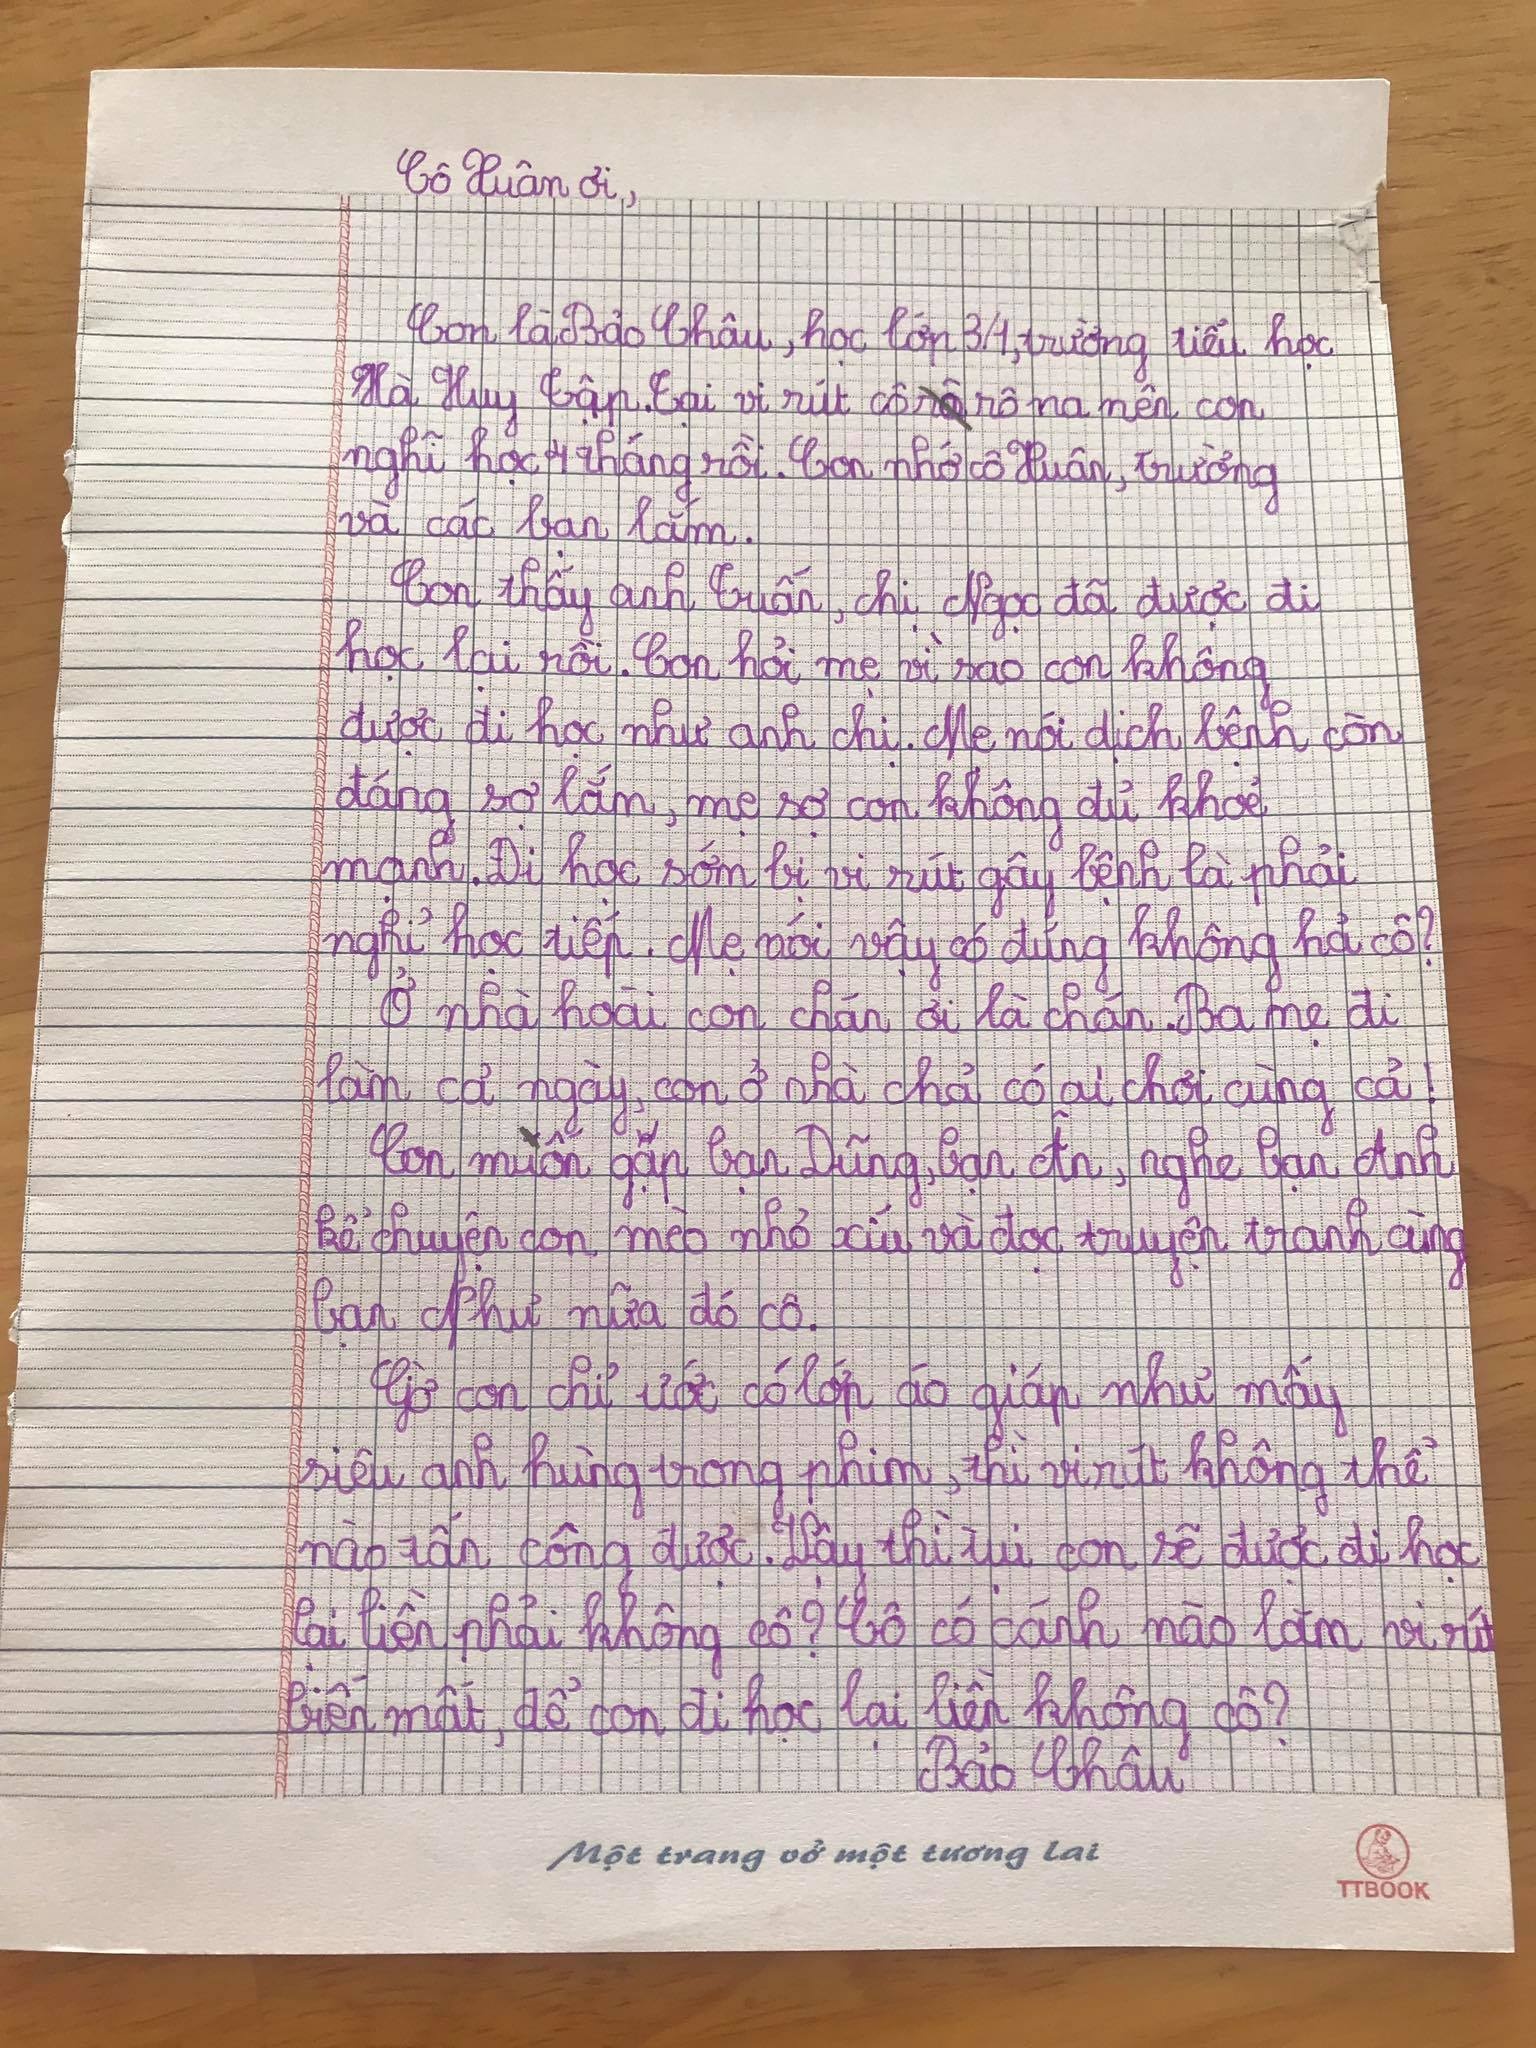 Cô Xuân ơi,
Con là Bảo Châu, học lớp 3/1, trường tiểu học
Hà Huy Tập. Tại vi rút cô rô na nên con
nghĩ học 4 tháng rồi. Con nhớ cô Xuân, trường
và các bạn lắm.
Con thấy anh Tuấn, chị Ngọc đã được đi
học lại rồi. Con hỏi mẹ vì sao con không
được đi học như anh chị. Mẹ nói dịch bệnh còn
đáng sợ lắm, mẹ sợ con không đủ khoẻ
mạnh. Đi học sớm bị vi rút gây bệnh là phải
nghỉ học tiếp. Mẹ nói vậy có đúng không hả cô?
Ở nhà hoài con chán ơi là chán. Ba mẹ đi
làm cả ngày, con ở nhà chả có ai chơi cùng cả!
Con muốn gặp bạn Dũng, bạn Ân, nghe bạn Anh
kể chuyện con mèo nhỏ xíu và đọc truyện tranh cùng
bạn Như nữa đó cô.
Giờ con chỉ ước có lớp áo giáp như mấy
siêu anh hùng trong phim, thì vi rút không thể
nào tấn công được. Vậy thì tụi con sẽ được đi học
lại liền phải không cô? Cô có cánh nào làm vi rút
biến mất, để con đi học lại liền không cô?
Bảo Châu
Một trang vở một tương lai
TTBOOK